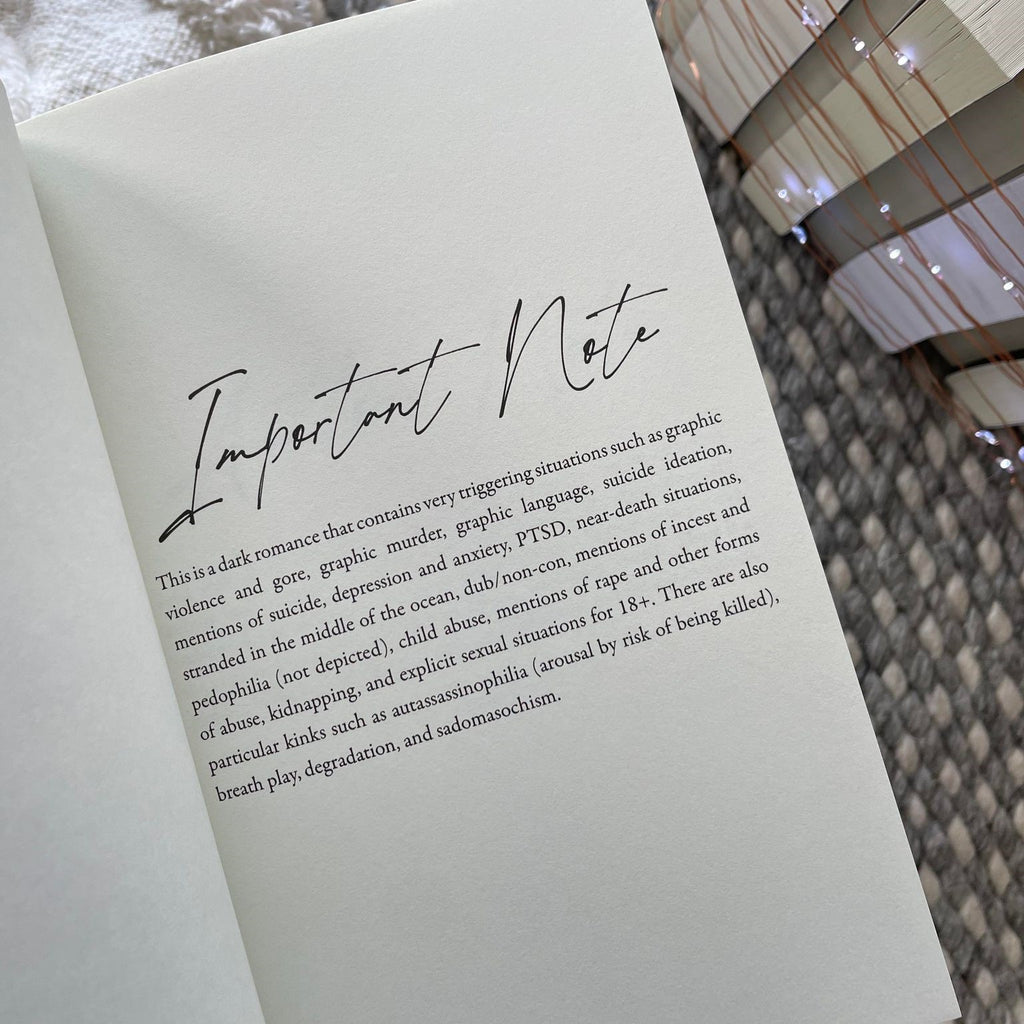 Important Note
This is a dark romance that contains very triggering situations such as graphic
violence and gore, graphic murder, graphic language, suicide ideation,
mentions of suicide, depression and anxiety, PTSD, near-death situations,
stranded in the middle of the ocean, dub/non-con, mentions of incest and
pedophilia (not depicted), child abuse, mentions of rape and other forms
of abuse, kidnapping, and explicit sexual situations for 18+. There are also
particular kinks such as autassassinophilia (arousal by risk of being killed),
breath play, degradation, and sadomasochism.